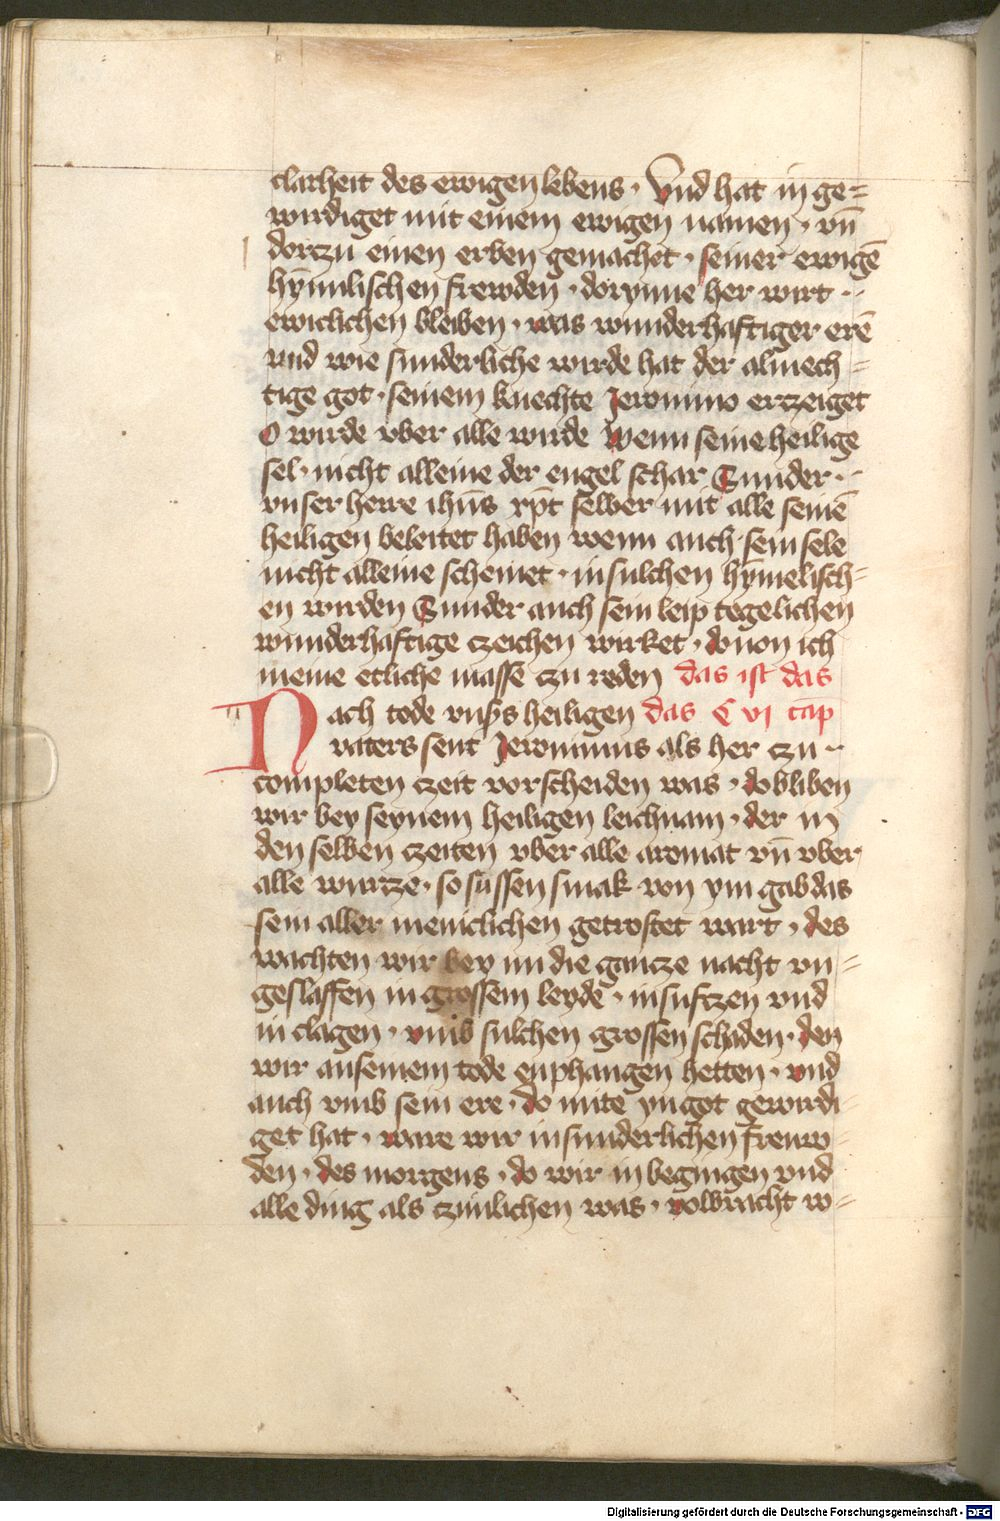 clarheit des ewigen lebens · Vnd hat in ge=
wirdiget mit einem ewigen namen · vn̄
dorczu einen erben gemachet · seiner ewigē
hȳmlischen frewden · dorynne her wirt ·
ewiclichen bleiben · was wunderhaftiger erē
vnd wie sunderliche wirde hat der almech=
tige got · seinem knechte Jeronimo erczeiget
O wirde vber alle wirde Wenn seine heilige
sel · nicht alleine der engel schar Sunder ·
vnser herre ihūs xp̄t selber mit alle seinē
heiligen beleitet haben wenn auch sein sele
nicht alleine scheinet · in sulchen hȳmelisch=
en wirden Sunder auch sein leip tegelichen
wunderhaftige czeichen wirket · douon ich
meine etliche masse czu reden das ist das
Nach tode vnsers heiligen das C vi cap̄
vaters sent Jeronimus als her czu
completen czeit vorscheiden was · do bliben
wir bey seynem heiligen leichnam · der in
den selben czeiten vber alle aromat vn̄ vber
alle wurcze · so sussen smak von ym gab das
sein aller meniclichen getrostet wart · des
wachten wir bey im die gancze nacht vn=
geslaffen in grossem leyde · in sufczen vnd
in clagen · vmb sulchen grossen schaden · den
wir an seinem tode enphangen hetten · vnd
auch vmb sein ere · do mite yn got gewirdi=
get hat · ware wir in sunderlichen frewo=
den · des morgens · do wir in begingen vnd
alle ding als czimlichen was · volbracht w=
Digitalisierung gefördert durch die Deutsche Forschungsgemeinschaft - DFG